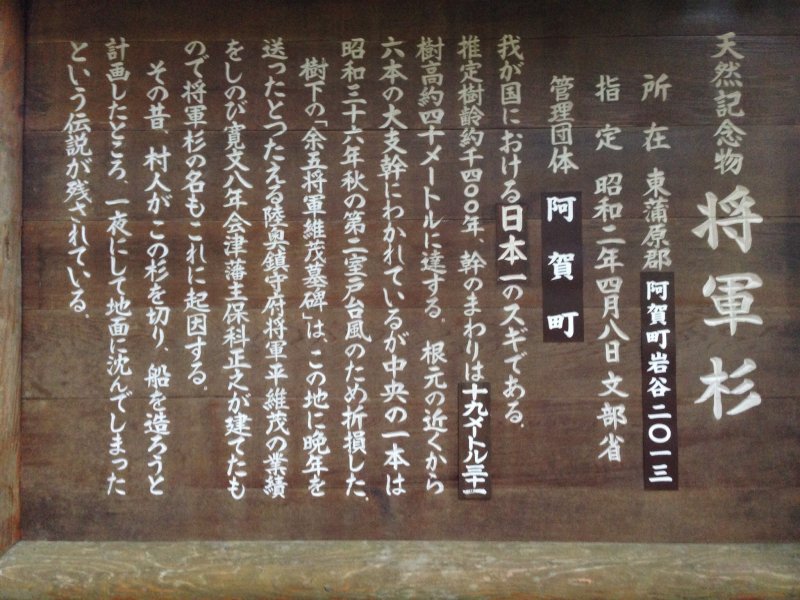 天然記念物 将軍杉
所在 東蒲原郡阿賀町岩谷二〇一三
指定 昭和二年四月八日 文部省
管理団体 阿賀町
我が国における日本一のスギである。
推定樹齢約千四〇〇年、幹のまわりは十九メートル三十一
樹高約四十メートルに達する。根元の近くから
六本の大支幹にわかれているが中央の一本は
昭和三十六年秋の第二室戸台風のため折損した。
樹下の「余五将軍維茂墓碑」は、この地に晩年を
送ったとつたえる陸奥鎮守府将軍平維茂の業績
をしのび寛文八年会津藩主保科正之が建てたも
ので将軍杉の名もこれに起因する。
その昔、村人がこの杉を切り、船を造ろうと
計画したところ、一夜にして地面に沈んでしまった
という伝説が残されている。